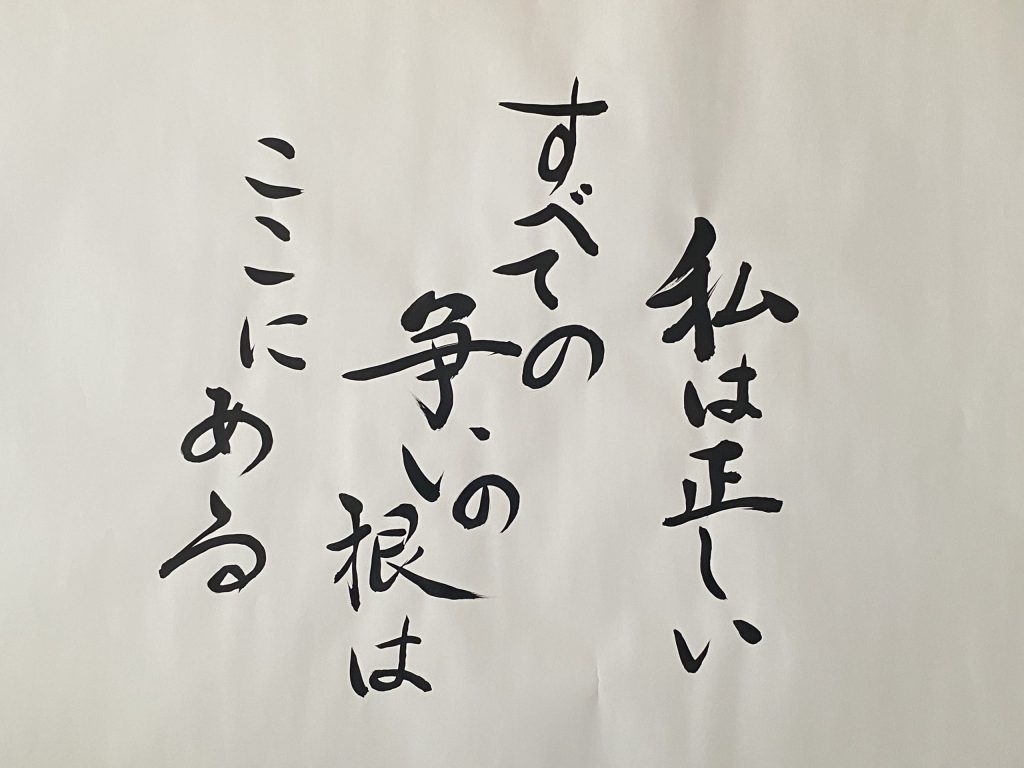 私は正しい
すべての
争いの
根は
ここにある